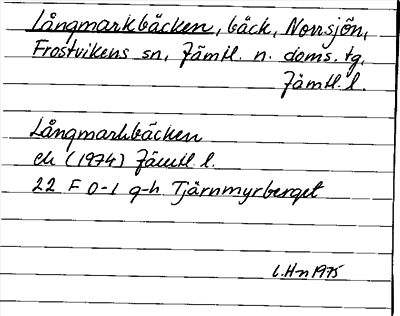 Långmarkbäcken, bäck, Norrsjön,
Frostvikens sn, Jämtl. n. doms. tg,
Jämtl. l.
Långmarkbäcken
ek (1974) Jämtl l.
22 F 0-1 g-h Tjärnmyrberget
L.Hn 1975